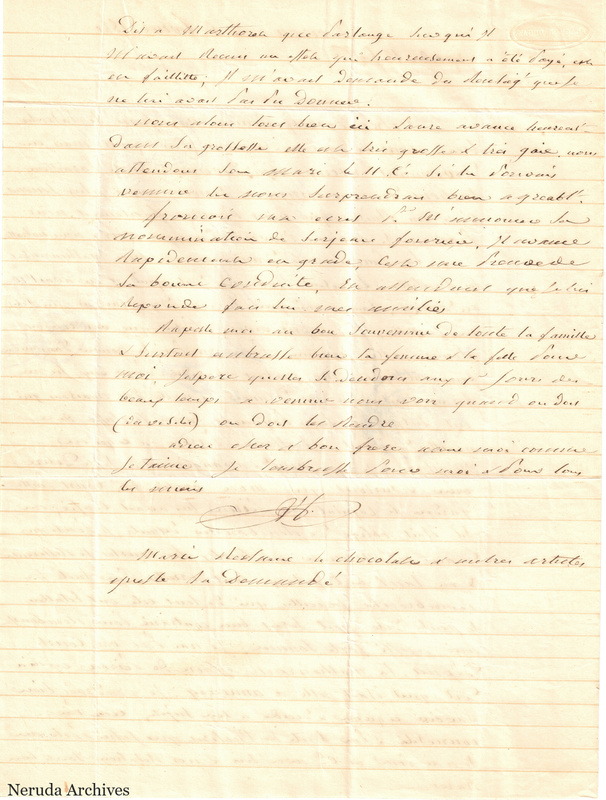 Dit a Marthoroh que Parlange sur qui Il
M'avait Remis un effet qui heureusement a été payé, est
en faillite, Il m'avait demandé du que Je
ne lui avait Pas Pu Donner.
Nous alons tous bien ici Laure avance heureust.
Dans Sa grossesse elle est très grosse & très gaie, nous
attendons Son Mari le Si tu Pouvais
venir tu nous Surprendrais bien agreabt.
francois ma ecrit Pr M'annoncer Sa
nommination de Serjent fourier, Il avance
Rapidement en grade, C'est une Preuve de
Sa bonne Conduite, En attendant que Je lui
reponde fais lui mes amitiés
Rapelle moi au bon Souvenir de toute ta famille
& Surtout embrasse bien ta femme & ta fille Pour
moi, J'espère quelles Se aux Jours des
beaux temps a venir nous voir quand on doit
on doit les Rendre
adieu cher & bon frere aime moi comme
Je taime Je t'embrasse Pour moi & Pour tous
les miens
Marie Reclame le chocolat & autres articles
quelle ta Demandé
Neruda Archives